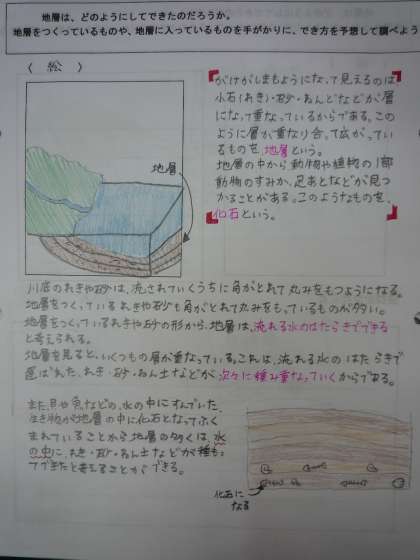 地層は、どのようにしてできたのだろうか。
地層をつくっているものや、地層に入っているものを手がかりに、でき方を予想して調べよう
〈 絵 〉
地層
がけがしまもようになって見えるのは
小石(れき)・砂・ねんどなどが層
になって重なっているからである。この
ように層が重なり合って広がってい
るものを、地層という。
地層の中から動物や植物の1部
動物のすみか、足あとなどが見つ
かることがある。このようなものを、
化石という。
川底のれきや砂は、流されていくうちに角がとれて丸みをもつようになる。
地層をつくっているれきや砂も角がとれて丸みをもっているものが多い。
地層をつくっているれきや砂の形から、地層は、流れる水のはたらきでできる
と考えられる。
地層を見ると、いくつもの層が重なっている。これは、流れる水のはたらきで
運ばれた、れき・砂・ねん土などが、次々に積み重なっていくからである。
また、貝や魚などの、水の中にすんでいた、
生き物が地層の中に化石となってふく
まれていることから地層の多くは、水
の中に、れき・砂・ねん土などが積もっ
てできたと考えることができる。
化石に
なる